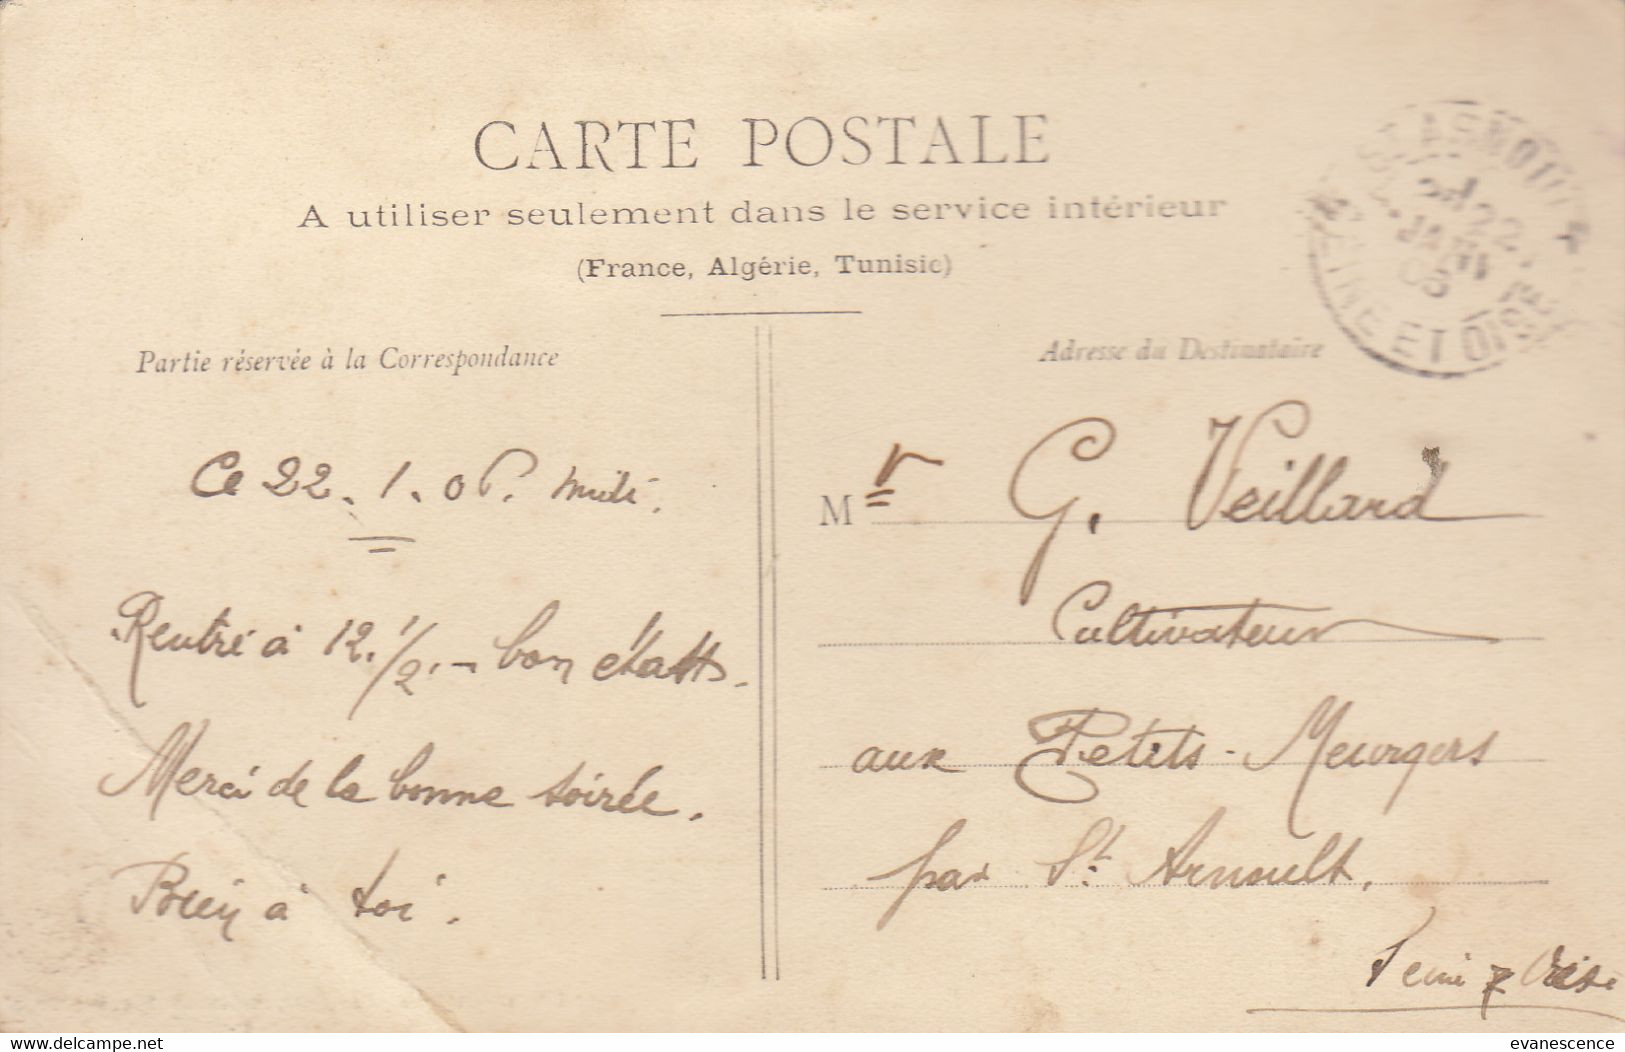 CARTE POSTALE
A utiliser seulement dans le service intérieur
(France, Algérie, Tunisie)
Partie réservée à la Correspondance
Ce 22.1.06.
Rentré à 12.1/2. – bon
Merci de la bonne soirée.
Bien à toi.
Adresse du Destinataire
Mr G. Veillard
Cultivateur
aux Petits-Meurgers
par St. Arnoult.
Seine & Oise
22
JANV
SEINE ET OISE
evanescence